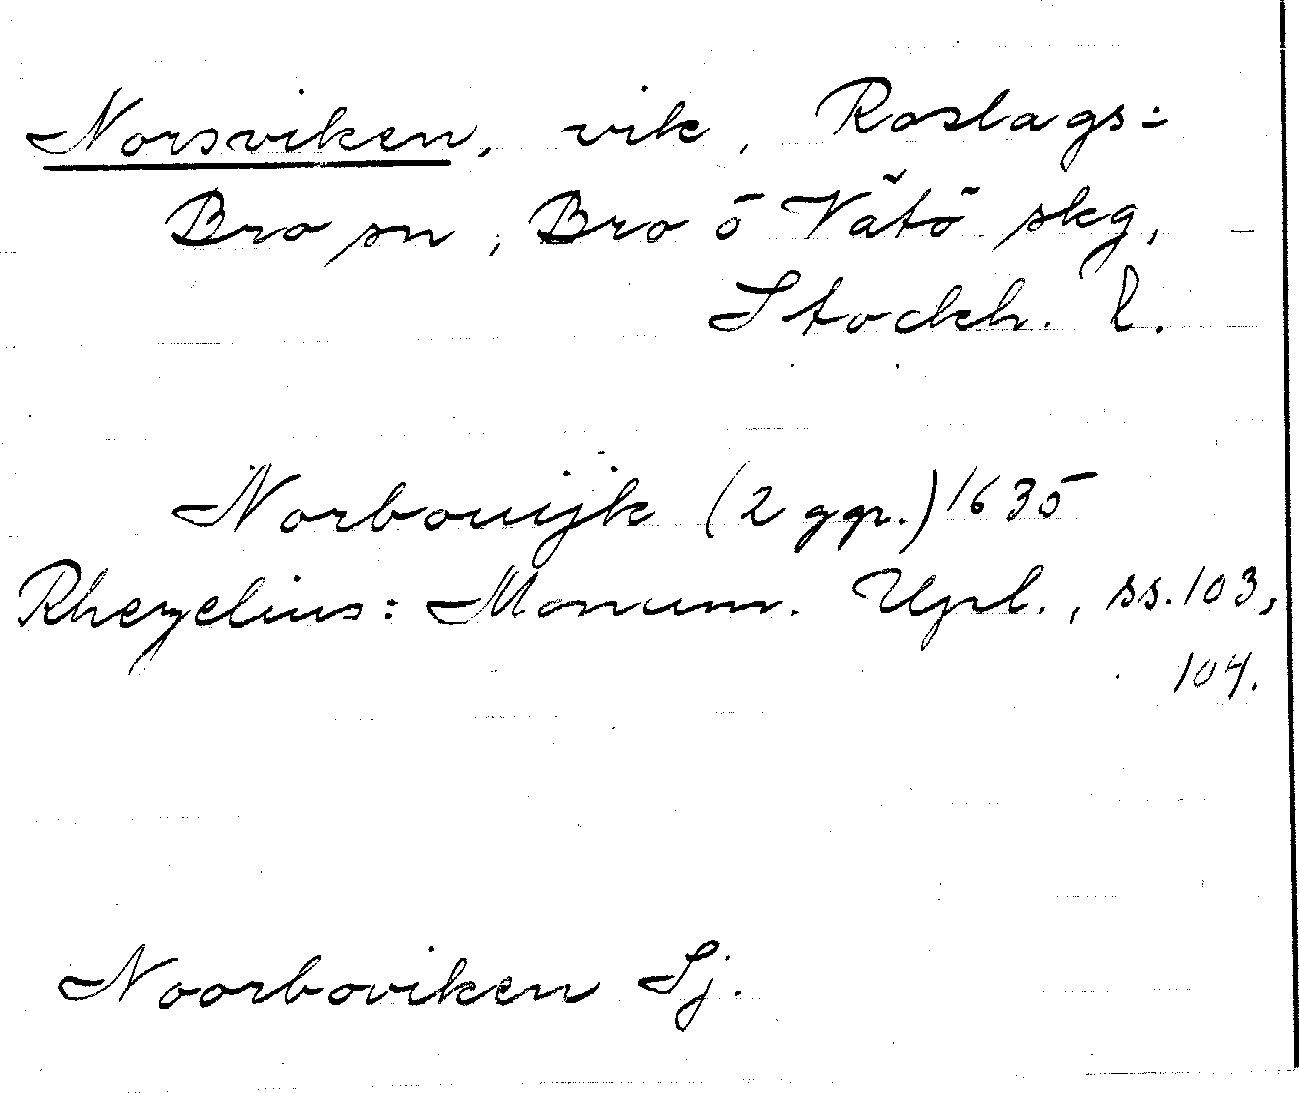 Norsviken, vik, Roslags=
Bro sn, Bro o Vätö skg,
Stockh. l.
Norbowijk (2 ggr.) 1635
Rhezelius: Monum. Upl., ss. 103,
104.
Noorboviken Sj.